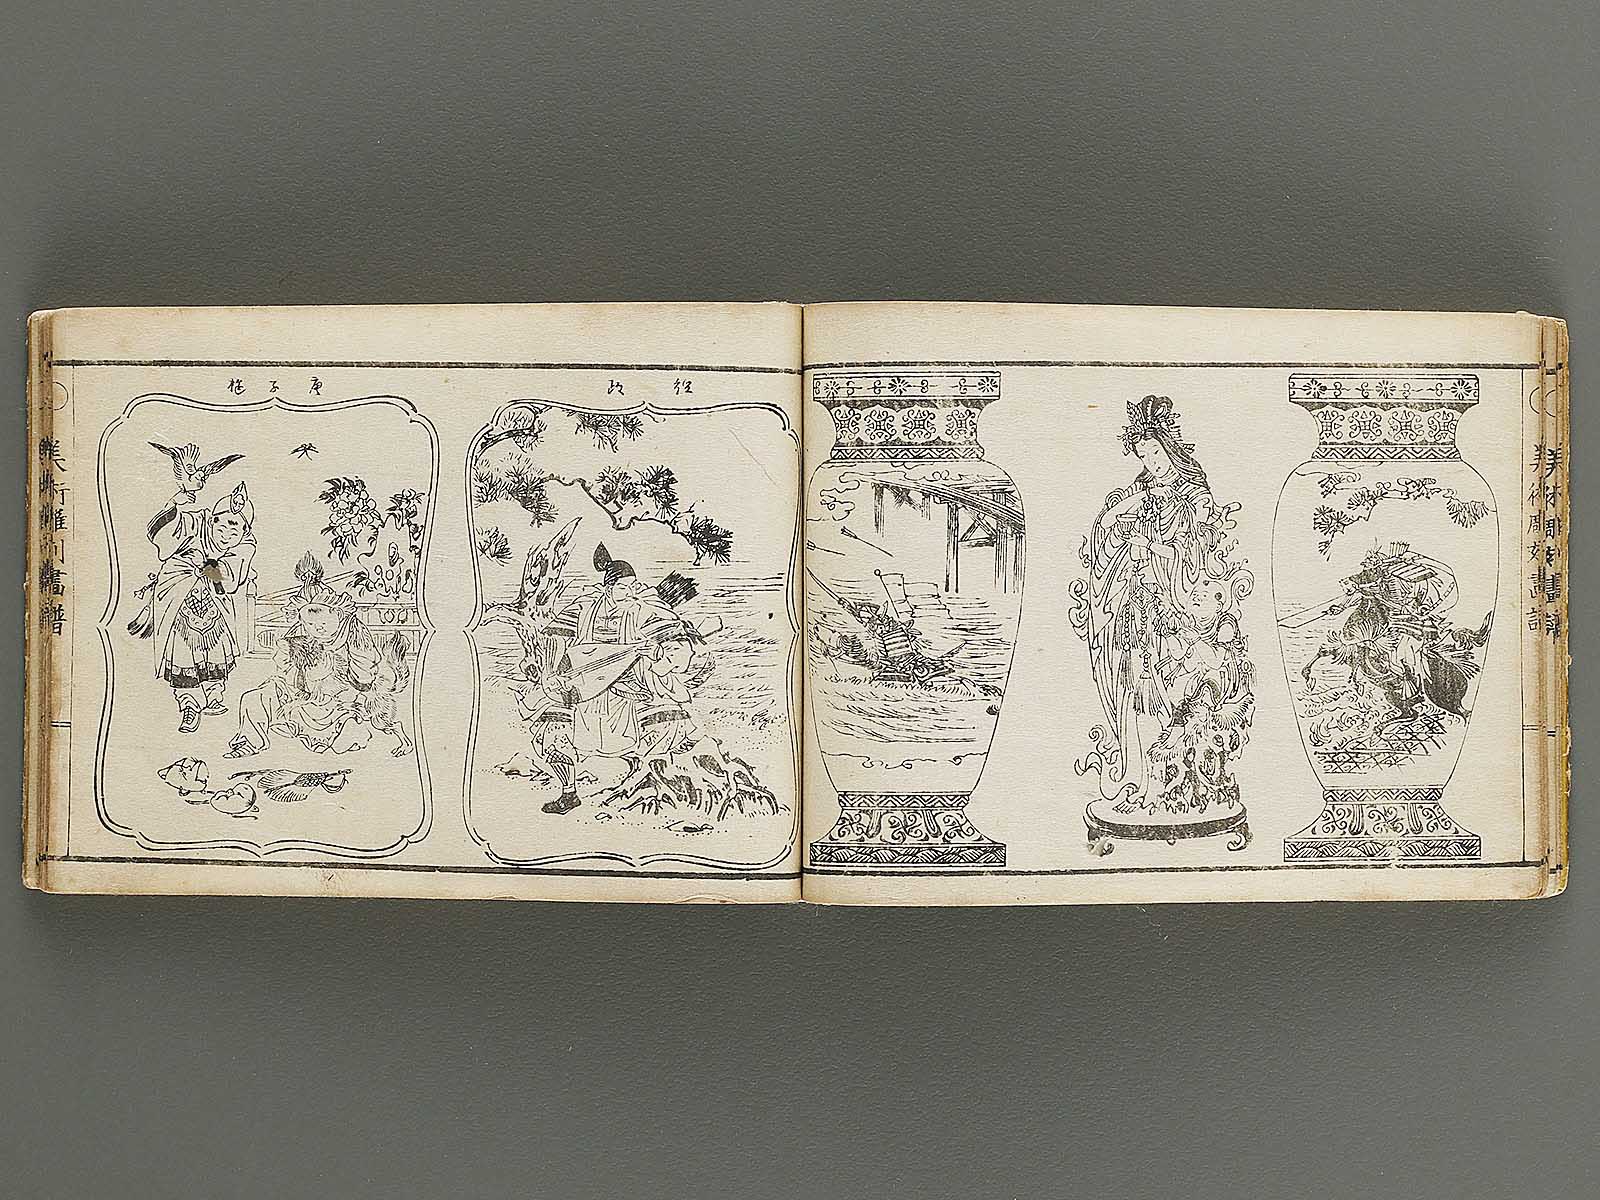 美術雕刻畫譜
經政
唐子遊
美術雕刻畫譜